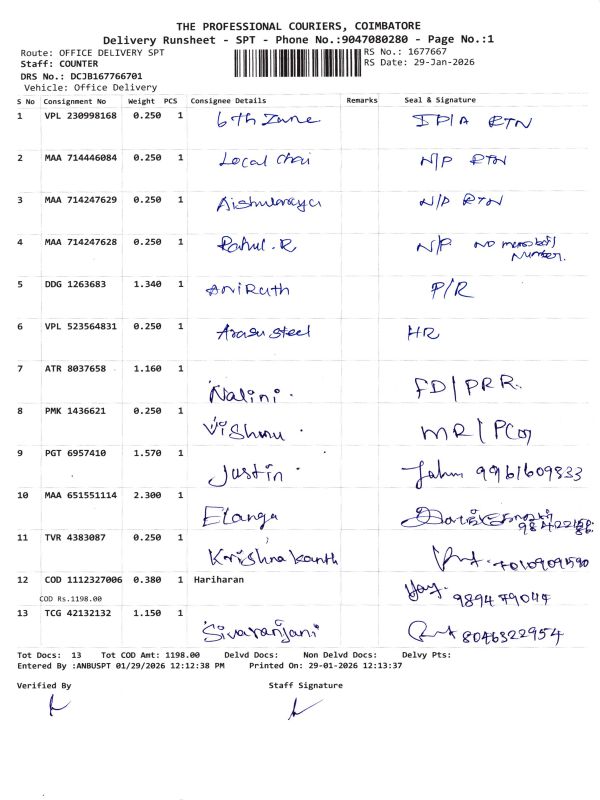 THE PROFESSIONAL COURIERS, COIMBATORE
Delivery Runsheet - SPT - Phone No.:9047080280 - Page No.:1
Route: OFFICE DELIVERY SPT RS No.: 1677667
Staff: COUNTER RS Date: 29-Jan-2026
DRS No.: DCJB167766701
Vehicle: Office Delivery
S No Consignment No Weight PCS Consignee Details Remarks Seal & Signature
1 VPL 230998168 0.250 1 6th Zune RTN
2 MAA 714446084 0.250 1 Local Chai N/P RTN
3 MAA 714247629 0.250 1 N/P RTN
4 MAA 714247628 0.250 1 Rahul.R N/P NO
Number.
5 DDG 1263683 1.340 1 AniRuth P/R
6 VPL 523564831 0.250 1 Arasu steel HR
7 ATR 8037658 1.160 1 Nalini. FD/PRR.
8 PMK 1436621 0.250 1 Vishnu. MR/
9 PGT 6957410 1.570 1 Justin
10 MAA 651551114 2.300 1 Elanga
11 TVR 4383087 0.250 1 Krishna kanth
12 COD 1112327006 0.380 1 Hariharan
COD Rs.1198.00
13 TCG 42132132 1.150 1 Sivaranjani 8046322954
Tot Docs: 13 Tot COD Amt: 1198.00 Delvd Docs: Non Delvd Docs: Delvy Pts:
Entered By :ANBUSPT 01/29/2026 12:12:38 PM Printed On: 29-01-2026 12:13:37
Verified By Staff Signature